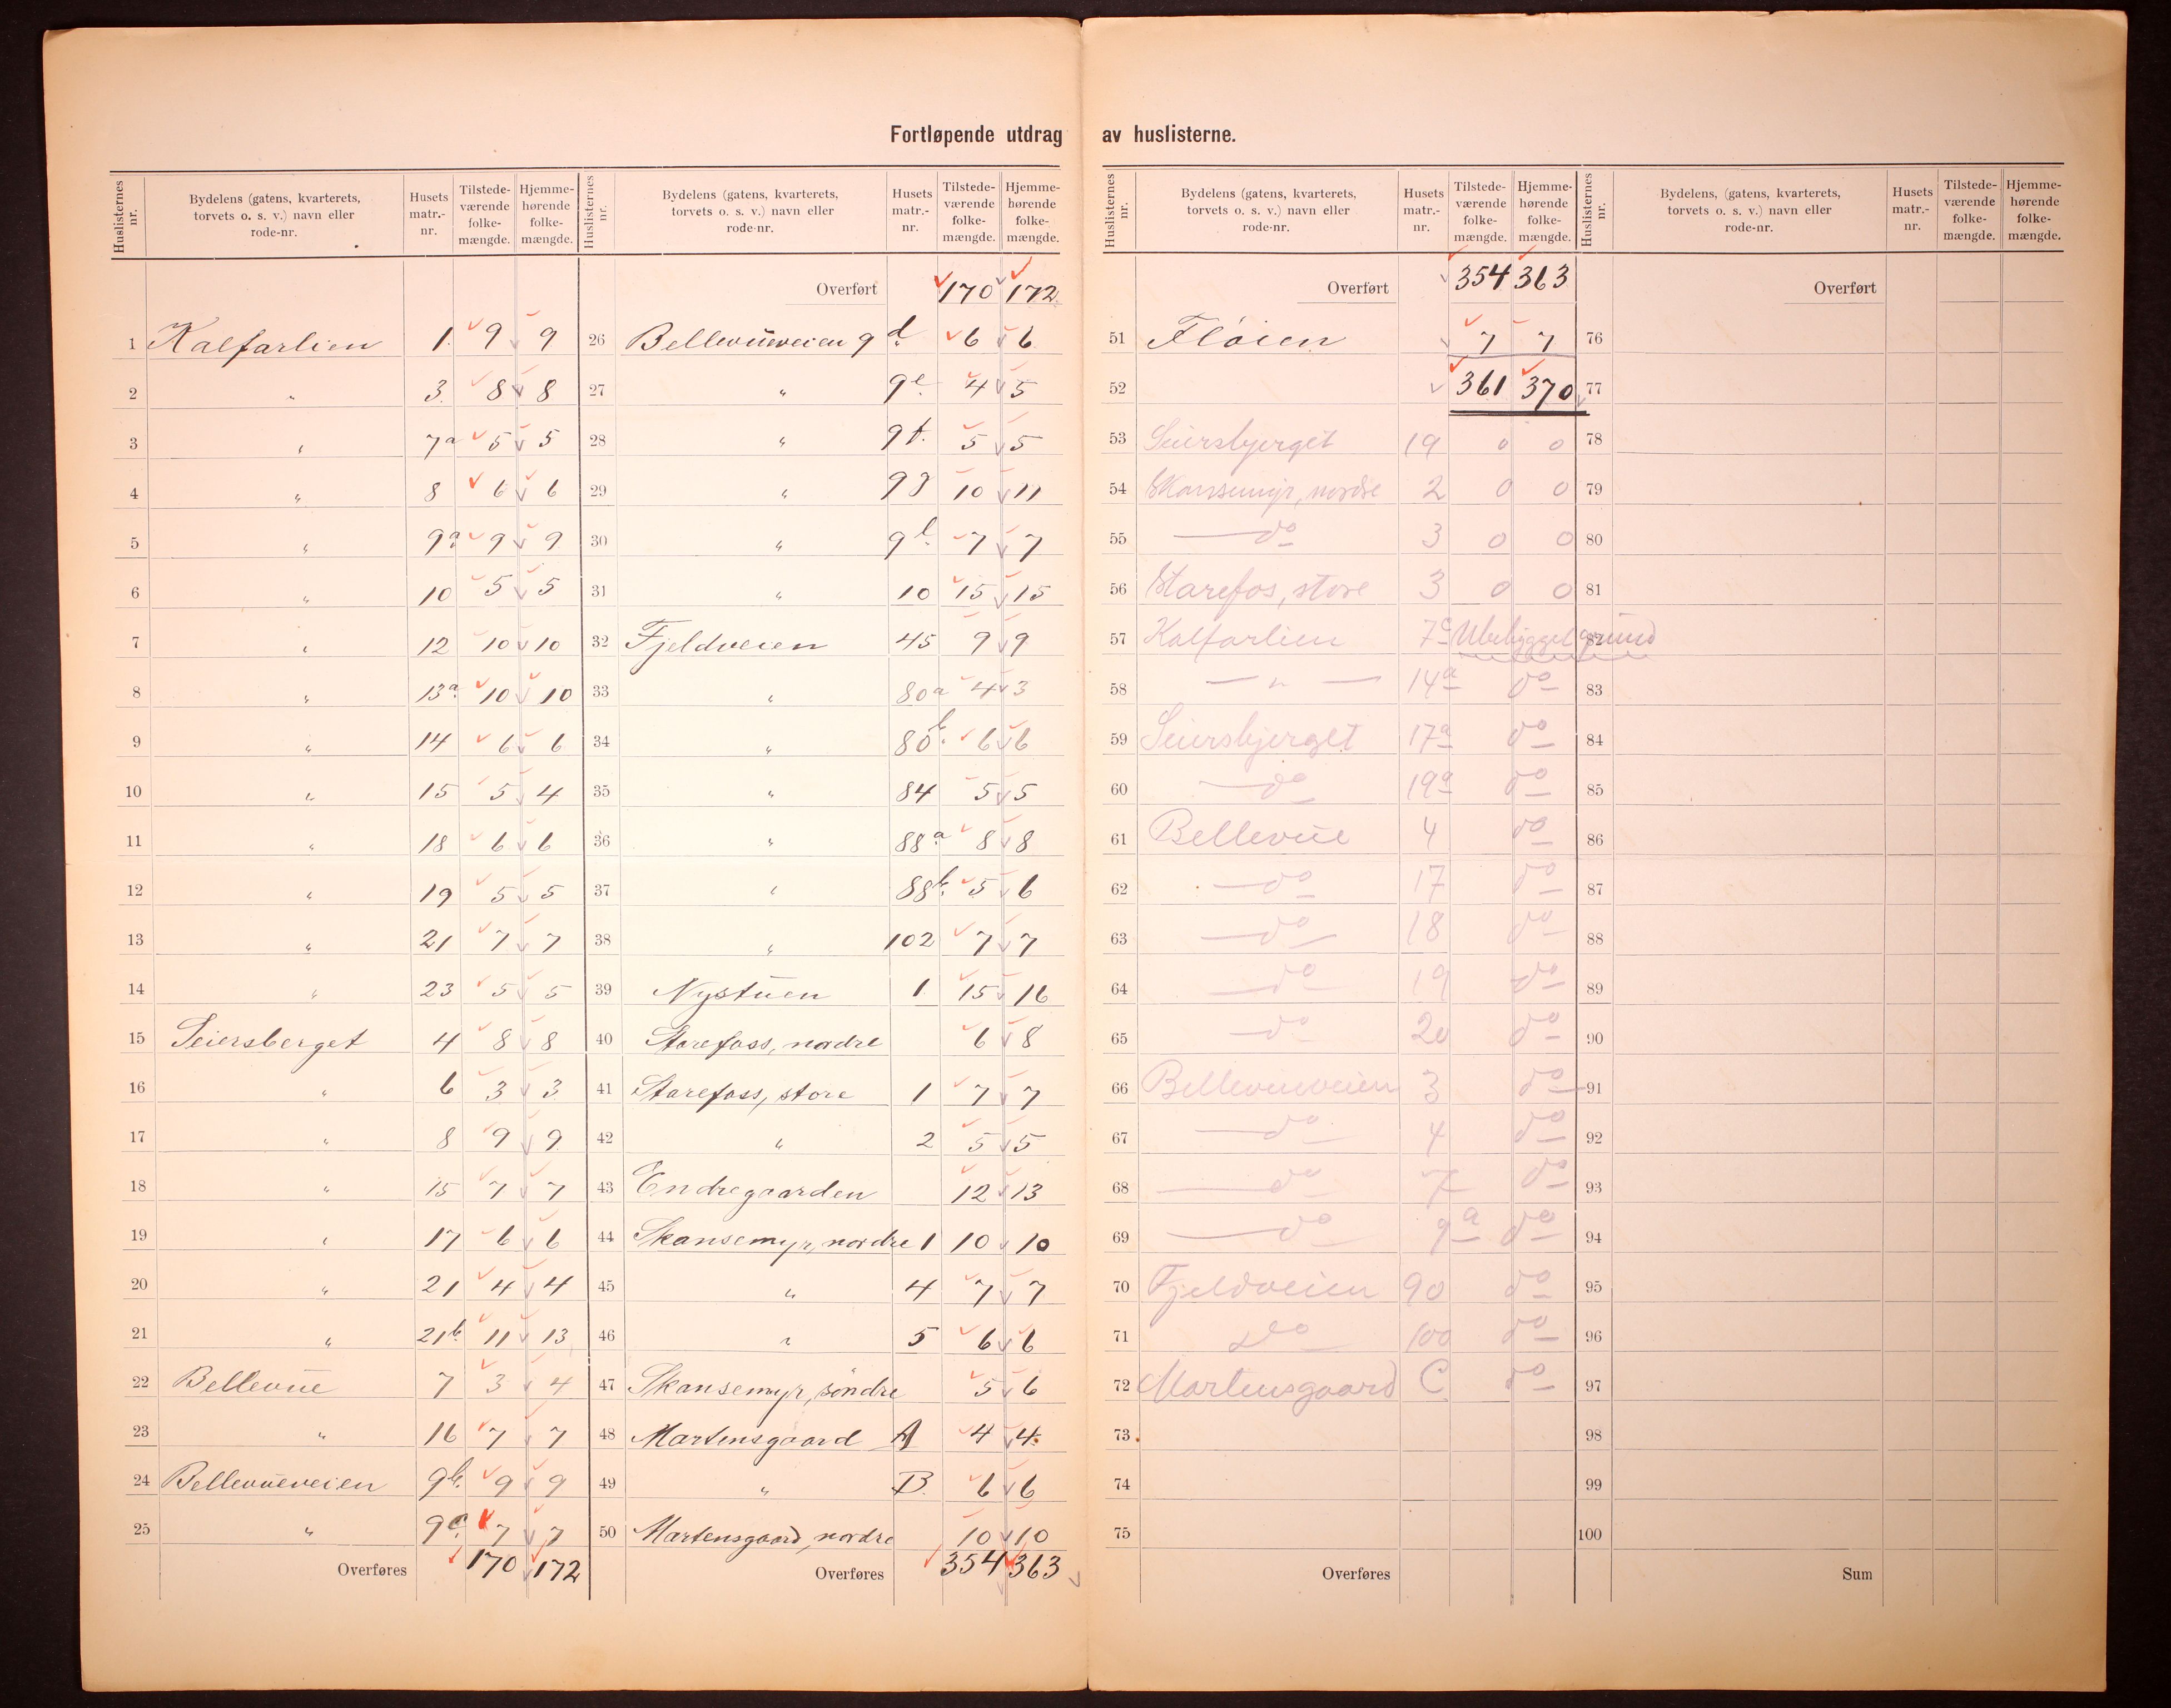 Fortløpende utdrag av huslisterne.
Huslisternes nr. Bydelens (gatens, kvarterets, torvets o. s. v.) navn eller rode-nr. Husets matr.-nr. Tilstede-værende folke-mængde. Hjemme-hørende folke-mængde.
1 Kalfarlien 1. 9 9
2 " 3. 8 8
3 " 7a 5 5
4 " 8 6 6
5 " 9a 9 9
6 " 10 5 5
7 " 12 10 10
8 " 13a 10 10
9 " 14 6 6
10 " 15 5 4
11 " 18 6 6
12 " 19 5 5
13 " 21 7 7
14 " 23 5 5
15 Seiersberget 4 8 8
16 " 6 3 3
17 " 8 9 9
18 " 15 7 7
19 " 17 6 6
20 " 21 4 4
21 " 21b. 11 13
22 Bellevue 7 3 4
23 " 16 7 7
24 Bellevueveien 9b. 9 9
25 " 9c. 7 7
Overføres 170 172
Huslisternes nr. Bydelens (gatens, kvarterets, torvets o. s. v.) navn eller rode-nr. Husets matr.-nr. Tilstede-værende folke-mængde. Hjemme-hørende folke-mængde.
Overført 170 172
26 Bellevueveien 9 d. 6 6
27 " 9e. 4 5
28 " 9f. 5 5
29 " 9g 10 11
30 " 9 7 7
31 " 10 15 15
32 Fjeldveien 45 9 9
33 " 80a 4 3
34 " 80b. 6 6
35 " 84 5 5
36 " 88a. 8 8
37 " 88b. 5 6
38 " 102 7 7
39 Nystuen 1 15 16
40 Starefoss, nordre 6 8
41 Starefoss, store 1 7 7
42 " 2 5 5
43 Endregaarden 12 13
44 Skansemyr, nordre 1 10 10
45 " 4 7 7
46 " 5 6 6
47 Skansemyr, söndre 5 6
48 Martensgaard A 4 4.
49 " B. 6 6
50 Martensgaard, nordre 10 10
Overføres 354 363
Huslisternes nr. Bydelens (gatens, kvarterets, torvets o. s. v.) navn eller rode-nr. Husets matr.-nr. Tilstede-værende folke-mængde. Hjemme-hørende folke-mængde.
Overført 354 363
51 Fløien 7 7
52 361 370
53 Seiersbjerget 19 0 0
54 Skansemyr, nordre 2 0 0
55 — do 3 0 0
56 Starefos, store 3 0 0
57 Kalfarlien 7c Ubebygget grund
58 — " — 14a do
59 Seiersbjerget 17a do
60 — do 19a do
61 Bellevue 4 do
62 — do 17 do
63 — do 18 do
64 — do 19 do
65 — do 20 do
66 Bellevueveien 3 do
67 — do 4 do
68 — do 7 do
69 — do 9a do
70 Fjeldveien 90 do
71 do 100 do
72 Martensgaard C do
73
74
75
Overføres
Huslisternes nr. Bydelens, (gatens, kvarterets, torvets o. s. v.) navn eller rode-nr. Husets matr.-nr. Tilstede-værende folke-mængde. Hjemme-hørende folke-mængde.
Overført
76
77
78
79
80
81
82
83
84
85
86
87
88
89
90
91
92
93
94
95
96
97
98
99
100
Sum